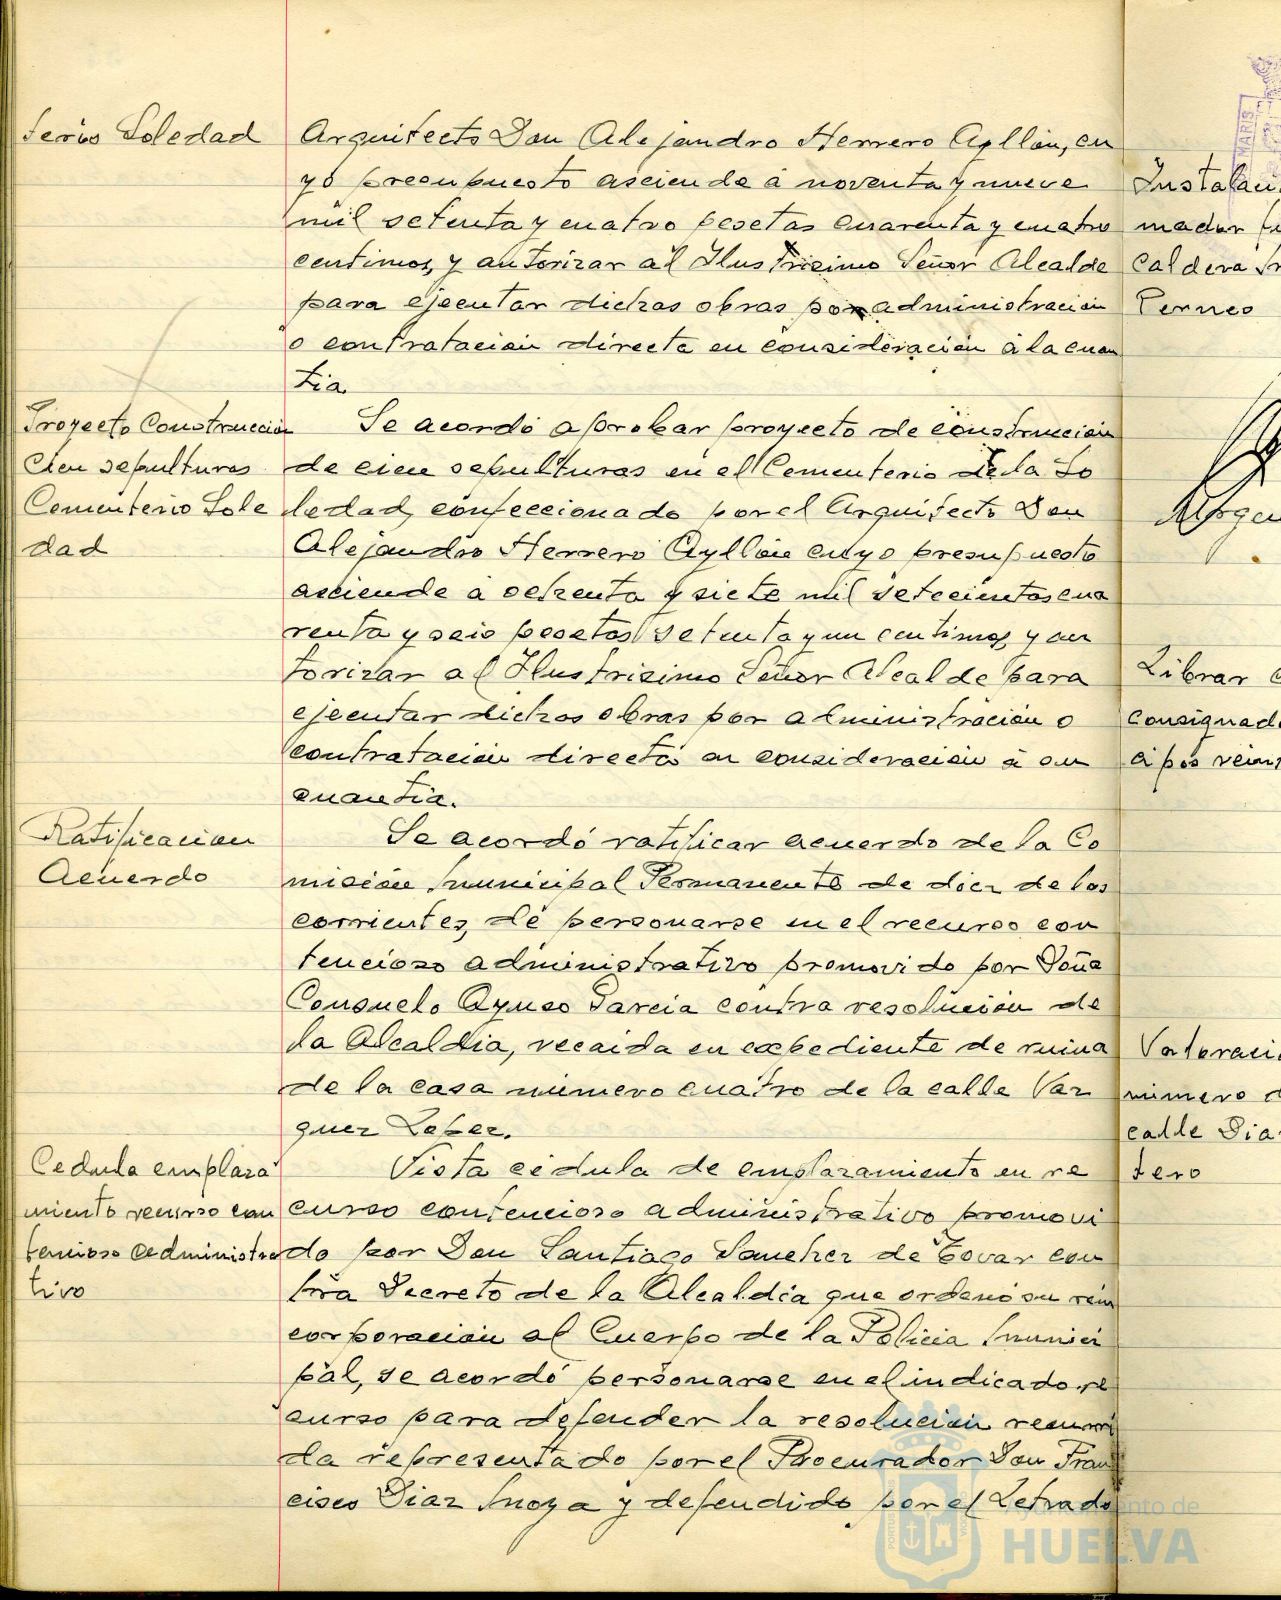 terio Soledad
Arquitecto Don Alejandro Herrero Ayllón, cu
yo presupuesto asciende á noventa y nueve
mil setenta y cuatro pesetas cuarenta y cuatro
centimos, y autorizar al Ilustrisimo Señor Alcalde
para ejecutar dichas obras por administracion
o contratación directa en consideración á la cuan
tia.
Proyecto Construccion
cien sepulturas
Cementerio Sole
dad
Se acordó aprobar proyecto de construcción
de cien sepulturas en el Cementerio de la So
ledad, confeccionado por el Arquitecto Don
Alejandro Herrero Ayllón cuyo presupuesto
asciende á ochenta y siete mil setecientas cua
renta y seis pesetas setenta y un centimos, y au
torizar al Ilustrisimo Señor Alcalde para
ejecutar dichas obras por administración o
contratación directa en consideración á su
cuantia.
Ratificacion
Acuerdo
Se acordó ratificar acuerdo de la Co
misión Municipal Permanente de diez de los
corrientes, de personarse en el recurso con
tencioso administrativo promovido por Doña
Consuelo Ayuso Garcia contra resolución de
la Alcaldia, recaida en expediente de ruina
de la casa número cuatro de la calle Vaz
quez Lopez.
Cedula emplaza
miento recurso con
tencioso administra
tivo
Vista cédula de emplazamiento en re
curso contencioso administrativo promovi
do por Don Santiago Sanchez de Tovar con
tra Decreto de la Alcaldia que ordenó su rein
corporación al Cuerpo de la Policia Munici
pal, se acordó personarse en el indicado re
curso para defender la resolución recurri
da representado por el Procurador Don Fran
cisco Diaz Moya y defendido por el Letrado
MARIS
Instalaci
mador
Caldera
Perneo
Librar
consignad
Valoraci
número
calle Dia
tero
Ayuntamiento de
HUELVA